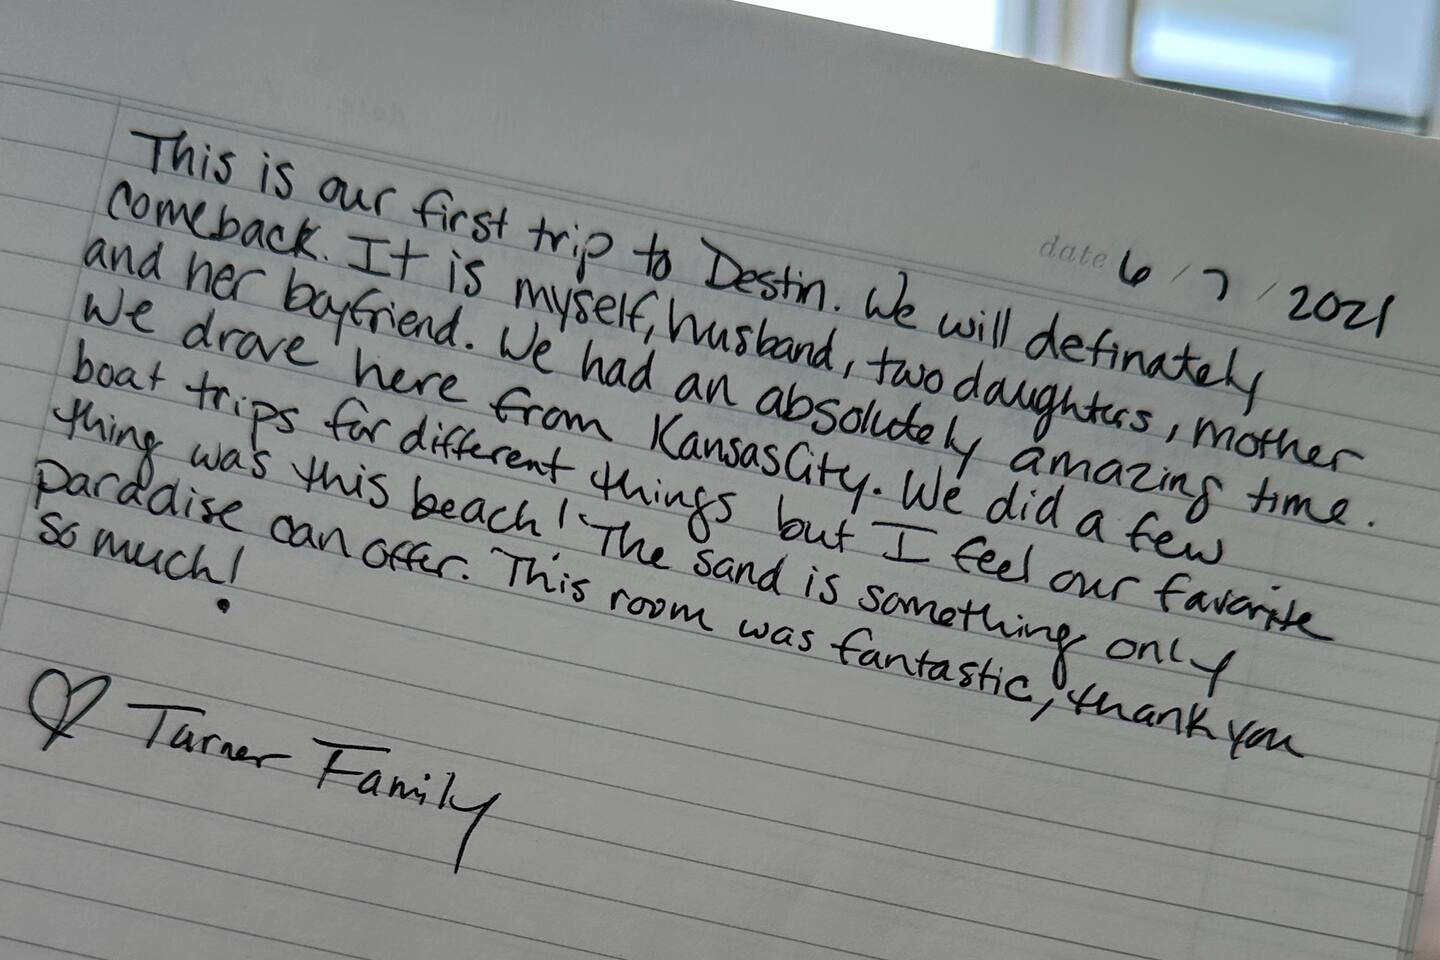 date 6/7/2021
This is our first trip to Destin. We will definately
comeback. It is myself, husband, two daughters, mother
and her boyfriend. We had an absolutely amazing time.
We drove here from Kansas City. We did a few
boat trips for different things but I feel our favorite
thing was this beach! The sand is something only
paradise can offer. This room was fantastic, thank you
so much!
♡ Turner Family